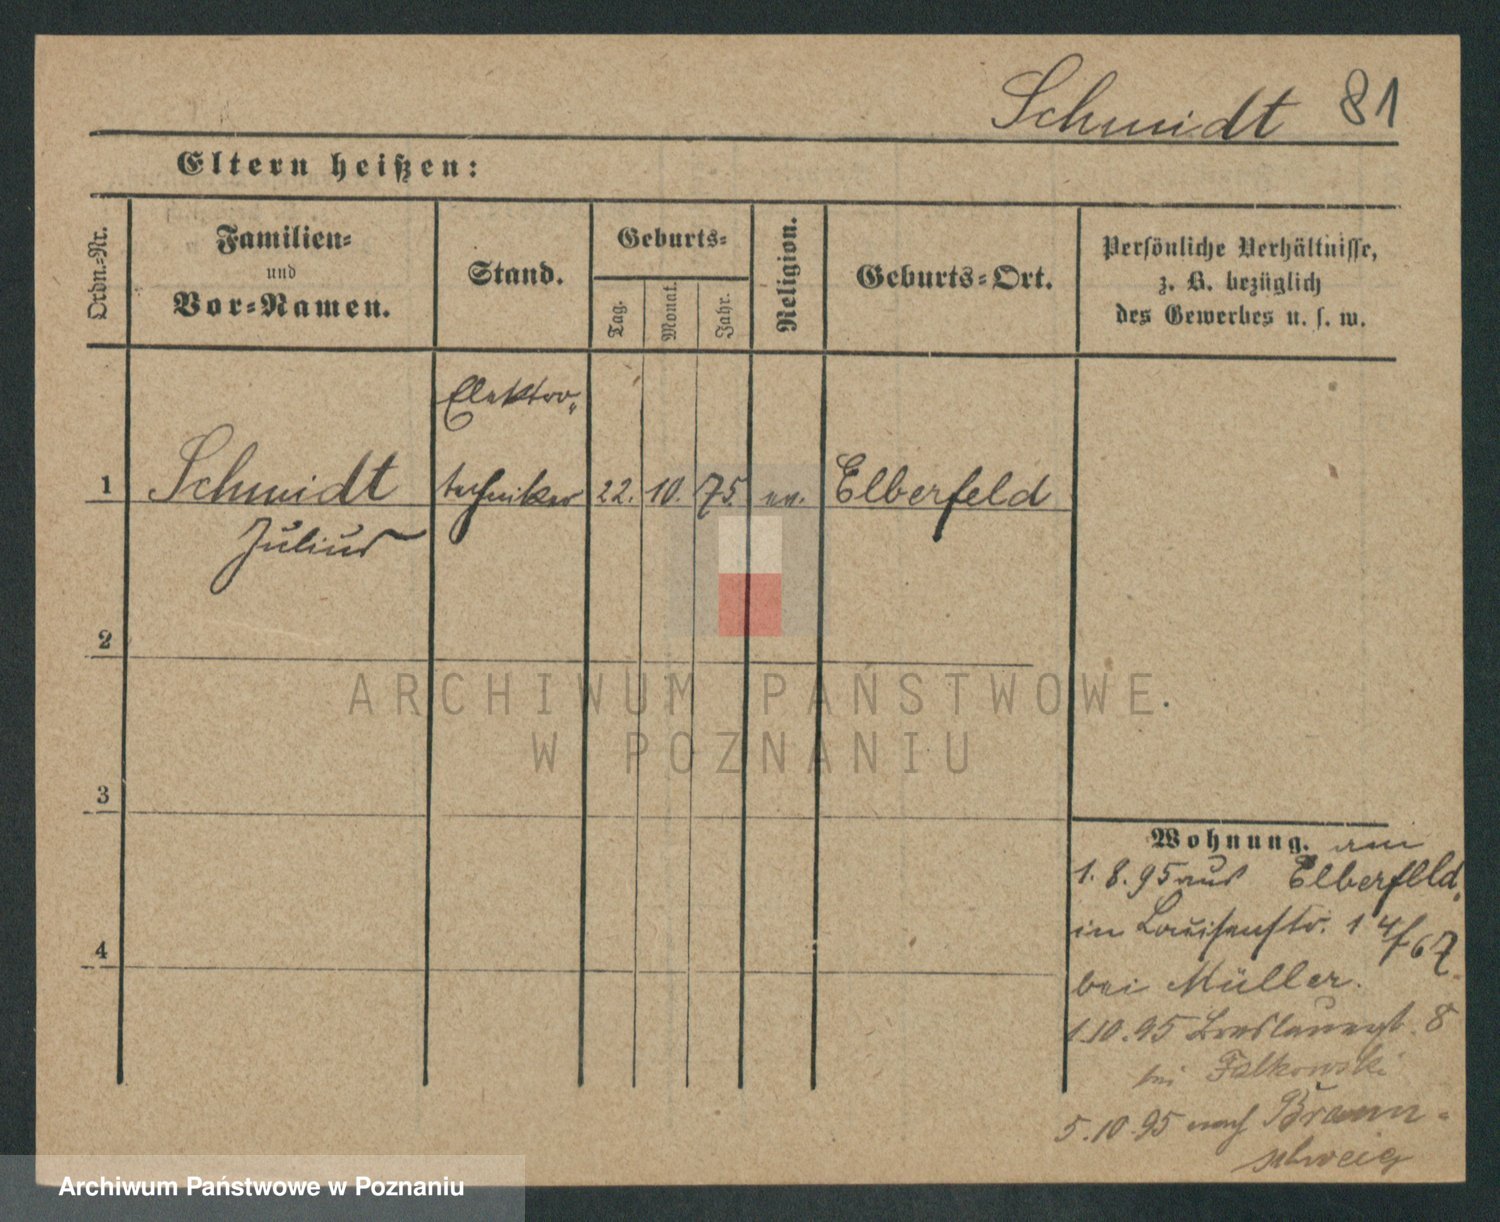 Schmidt 81
Eltern heißen:
Ordn.=Nr.
Familien=
und
Vor=Namen.
Stand.
Geburts=
Tag.
Monat.
Jahr.
Religion.
Geburts=Ort.
Persönliche Verhältnisse,
z. B. bezüglich
des Gewerbes u. s. w.
Elektro„
1 Schmidt techniker 22. 10. 75. ev. Elberfeld
Julius
2
ARCHIWUM PAŃSTWOWE
W POZNANIU
3
Wohnung.
1. 8. 95 aus Elberfeld,
4
in Louisenstr.
bei Müller.
1.10.95 Breslauerst. 8
bei Falkowski
5.10.95 nach Braun-
schweig
Archiwum Państwowe w Poznaniu